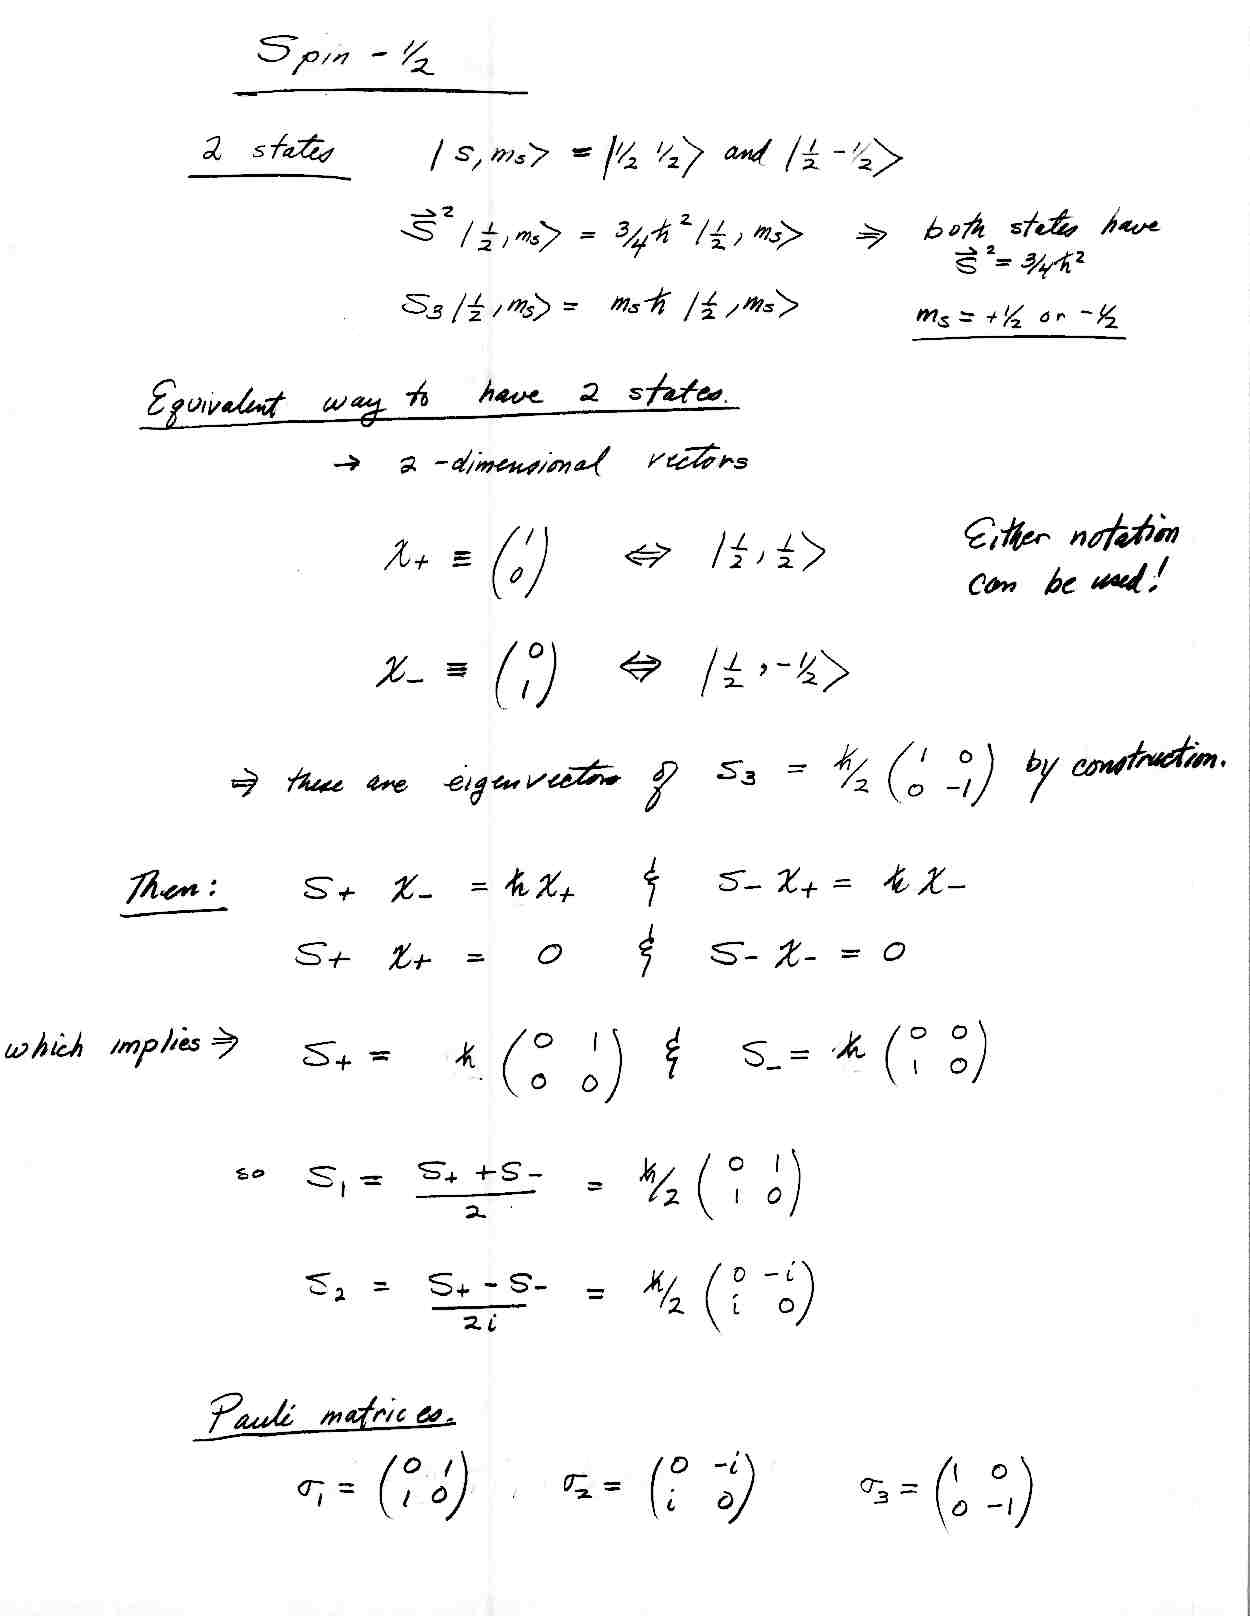 Spin - 1/2
2 states |s, ms> = |1/2 1/2> and |1/2 -1/2>
S⃗² |1/2, ms> = 3/4 ħ² |1/2, ms> ⇒ both states have
S⃗² = 3/4 ħ²
S3 |1/2, ms> = ms ħ |1/2, ms> ms = +1/2 or -1/2
Equivalent way to have 2 states.
→ 2-dimensional vectors
χ+ ≡ (1; 0) ⇔ |1/2, 1/2> Either notation
can be used!
χ- ≡ (0; 1) ⇔ |1/2, -1/2>
⇒ these are eigenvectors of S3 = ħ/2 (1 0; 0 -1) by construction.
Then: S+ χ- = ħ χ+ & S- χ+ = ħ χ-
S+ χ+ = 0 & S- χ- = 0
which implies ⇒ S+ = ħ (0 1; 0 0) & S- = ħ (0 0; 1 0)
so S1 = (S+ + S-)/2 = ħ/2 (0 1; 1 0)
S2 = (S+ - S-)/2i = ħ/2 (0 -i; i 0)
Pauli matrices.
σ1 = (0 1; 1 0) σ2 = (0 -i; i 0) σ3 = (1 0; 0 -1)